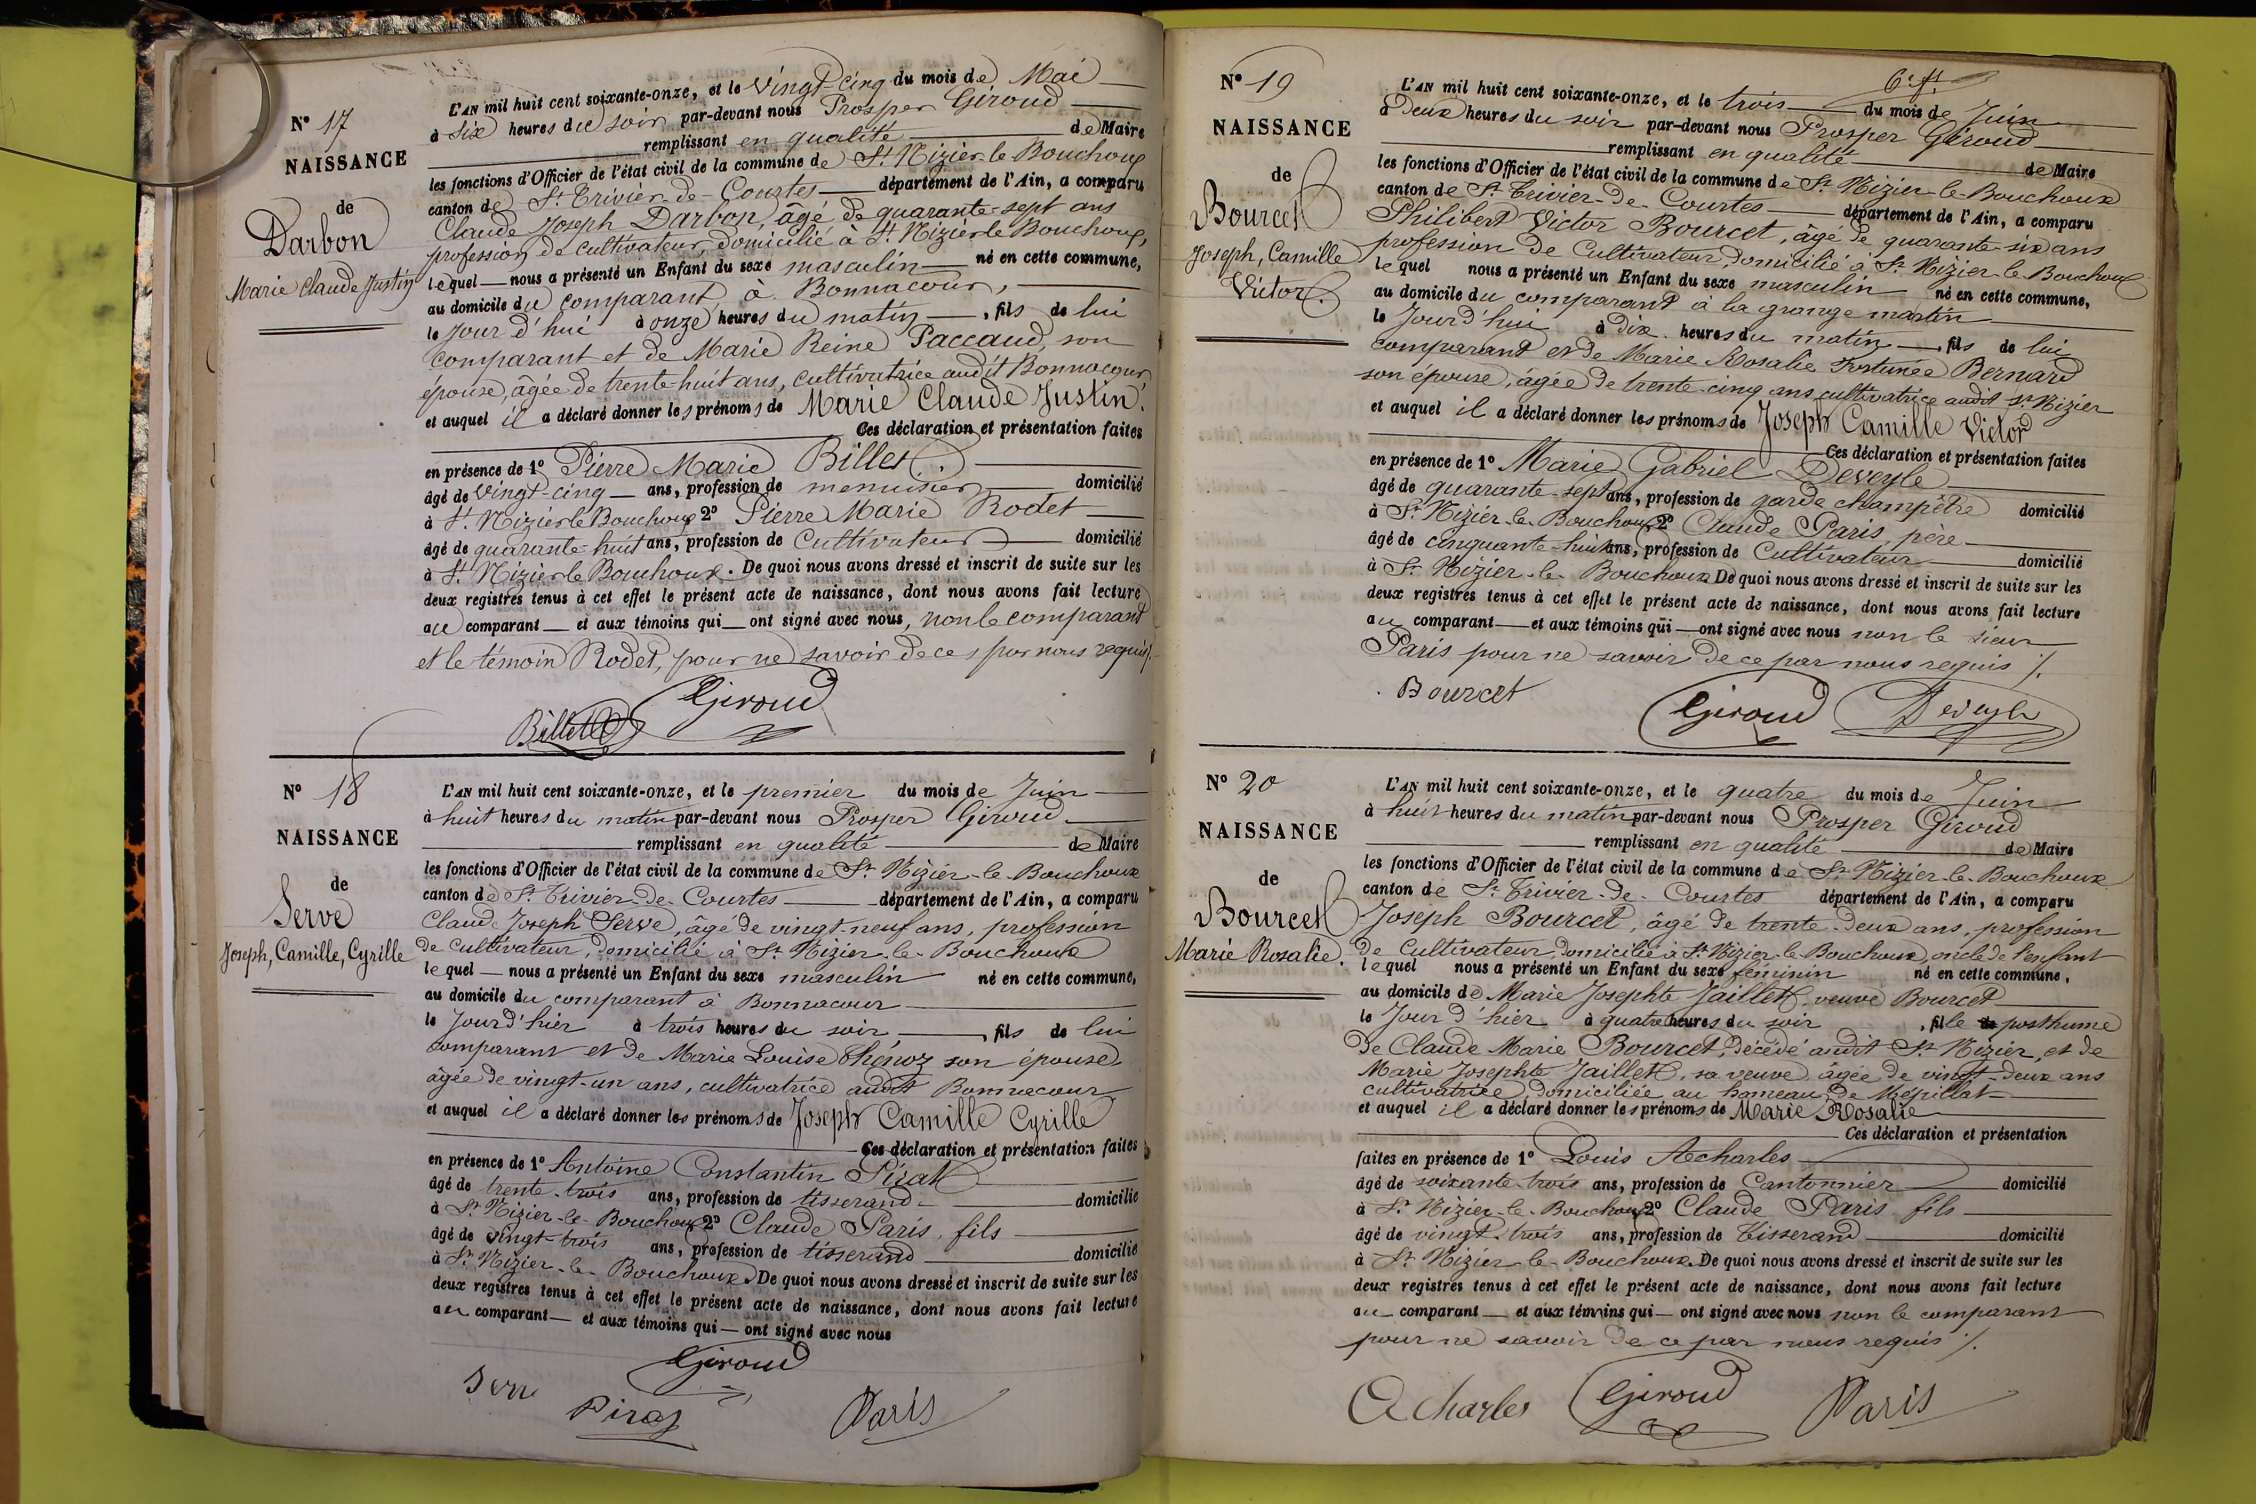 N° 17
NAISSANCE
de
Darbon
Marie Claude Justin
L'AN mil huit cent soixante-onze, et le vingt-cinq du mois de Mai
à six heures du soir par-devant nous Prosper Giroud
remplissant en qualité de Maire
les fonctions d'Officier de l'état civil de la commune de St Nizier le Bouchoux
canton de St Trivier-de-Courtes département de l'Ain, a comparu
Claude Joseph Darbon, âgé de quarante-sept ans
profession de cultivateur, domicilié à St Nizier le Bouchoux,
lequel nous a présenté un Enfant du sexe masculin né en cette commune,
au domicile du comparant, à Bonnacour,
le Jour d'hui à onze heures du matin, fils de lui
comparant et de Marie Reine Paccaud, son
épouse, âgée de trente huit ans, cultivatrice audit Bonnacour,
et auquel il a déclaré donner les prénoms de Marie Claude Justin.
Ces déclaration et présentation faites
en présence de 1° Pierre Marie Billet
âgé de vingt-cinq ans, profession de menuisier domicilié
à St Nizier le Bouchoux 2° Pierre Marie Rodet
âgé de quarante-huit ans, profession de Cultivateur domicilié
à St Nizier le Bouchoux. De quoi nous avons dressé et inscrit de suite sur les
deux registres tenus à cet effet le présent acte de naissance, dont nous avons fait lecture
au comparant et aux témoins qui ont signé avec nous, non le comparant
et le témoin Rodet, pour ne savoir de ce par nous requis/.
Giroud
Billet
N° 18
NAISSANCE
de
Serve
Joseph, Camille, Cyrille
L'AN mil huit cent soixante-onze, et le premier du mois de Juin
à huit heures du matin par-devant nous Prosper Giroud
remplissant en qualité de Maire
les fonctions d'Officier de l'état civil de la commune de St Nizier-le-Bouchoux
canton de St Trivier-de-Courtes département de l'Ain, a comparu
Claude Joseph Serve, âgé de vingt-neuf ans, profession
de cultivateur, domicilié à St Nizier-le-Bouchoux
lequel nous a présenté un Enfant du sexe masculin né en cette commune,
au domicile du comparant à Bonnacour
le Jour d'hier à trois heures du soir, fils de lui
comparant et de Marie Louise Chénoz son épouse,
âgée de vingt-un ans, cultivatrice audit Bonnacour
et auquel il a déclaré donner les prénoms de Joseph Camille Cyrille
Ces déclaration et présentation faites
en présence de 1° Antoine Constantin Pirat
âgé de trente-trois ans, profession de tisserand domicilié
à St Nizier-le-Bouchoux 2° Claude Paris, fils
âgé de vingt-trois ans, profession de tisserand domicilié
à St Nizier-le-Bouchoux. De quoi nous avons dressé et inscrit de suite sur les
deux registres tenus à cet effet le présent acte de naissance, dont nous avons fait lecture
au comparant et aux témoins qui ont signé avec nous
Giroud
Serve
Pirat
Paris
N° 19
NAISSANCE
de
Bourcet
Joseph, Camille
Victor.
L'AN mil huit cent soixante-onze, et le trois du mois de Juin
à Deux heures du soir par-devant nous Prosper Giroud
remplissant en qualité de Maire
les fonctions d'Officier de l'état civil de la commune de St Nizier-le-Bouchoux
canton de St Trivier-de-Courtes département de l'Ain, a comparu
Philibert Victor Bourcet, âgé de quarante-six ans
profession de Cultivateur, domicilié à St Nizier-le-Bouchoux
lequel nous a présenté un Enfant du sexe masculin né en cette commune,
au domicile du comparant à la grange martin
le Jour d'hui à dix heures du matin, fils de lui
comparant et de Marie Rosalie Fortunée Bernard
son épouse, âgée de trente-cinq ans cultivatrice audit St Nizier
et auquel il a déclaré donner les prénoms de Joseph Camille Victor
Ces déclaration et présentation faites
en présence de 1° Marie Gabriel Deveyle
âgé de quarante-sept ans, profession de garde champêtre domicilié
à St Nizier-le-Bouchoux 2° Claude Paris, père
âgé de cinquante-huit ans, profession de Cultivateur domicilié
à St Nizier-le-Bouchoux De quoi nous avons dressé et inscrit de suite sur les
deux registres tenus à cet effet le présent acte de naissance, dont nous avons fait lecture
au comparant et aux témoins qui ont signé avec nous non le sieur
Paris pour ne savoir de ce par nous requis /.
Bourcet
Giroud
Deveyle
N° 20
NAISSANCE
de
Bourcet
Marie Rosalie.
L'AN mil huit cent soixante-onze, et le quatre du mois de Juin
à huit heures du matin par-devant nous Prosper Giroud
remplissant en qualité de Maire
les fonctions d'Officier de l'état civil de la commune de St Nizier-le-Bouchoux
canton de St Trivier-de-Courtes département de l'Ain, a comparu
Joseph Bourcet, âgé de trente-deux ans, profession
de Cultivateur, domicilié à St Nizier-le-Bouchoux, oncle de l'enfant
lequel nous a présenté un Enfant du sexe féminin né en cette commune,
au domicile de Marie Josephte Jaillet veuve Bourcet
le Jour d'hier à quatre heures du soir, fille posthume
de Claude Marie Bourcet, décédé audit St Nizier, et de
Marie Josephte Jaillet, sa veuve âgée de vingt-deux ans
cultivatrice, domiciliée au hameau de Mépillat
et auquel il a déclaré donner les prénoms de Marie Rosalie
Ces déclaration et présentation
faites en présence de 1° Louis Acharles
âgé de soixante-trois ans, profession de Cantonnier domicilié
à St Nizier-le-Bouchoux 2° Claude Paris fils
âgé de vingt-trois ans, profession de Tisserand domicilié
à St Nizier-le-Bouchoux. De quoi nous avons dressé et inscrit de suite sur les
deux registres tenus à cet effet le présent acte de naissance, dont nous avons fait lecture
au comparant et aux témoins qui ont signé avec nous non le comparant
pour ne savoir de ce par nous requis /.
Acharles
Giroud
Paris